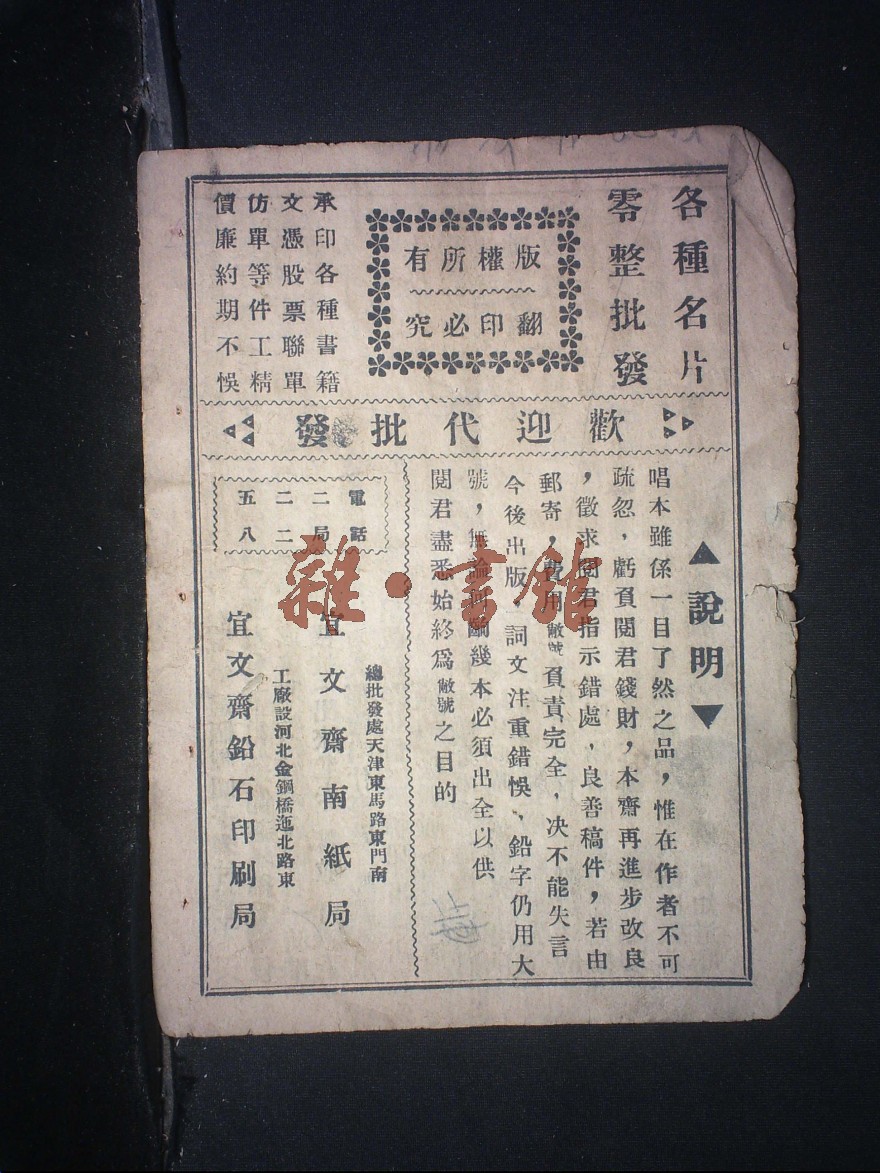 各種名片
零整批發
版權所有
翻印必究
承印各種書籍
文憑股票聯單
仿單等件工精
價廉約期不悞
歡迎代批發
▲說明▼
唱本雖係一目了然之品，惟在作者不可
疏忽，虧負閱君錢財，本齋再進步改良
，徵求閱君指示錯處、良善稿件，若由
郵寄，費用敝號負責完全，决不能失言
今後出版，詞文注重錯悞、鉛字仍用大
號，無論何齣幾本必須出全以供
閱君盡悉始終爲敝號之目的
電話
二局
二二
五八
總批發處天津東馬路東門南
宜文齋南紙局
工廠設河北金鋼橋迤北路東
宜文齋鉛石印刷局
雜·書館